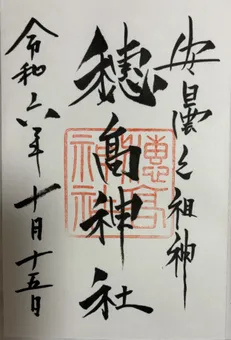 安曇之祖神
穂髙神社
令和六年十月十五日
穂高神社